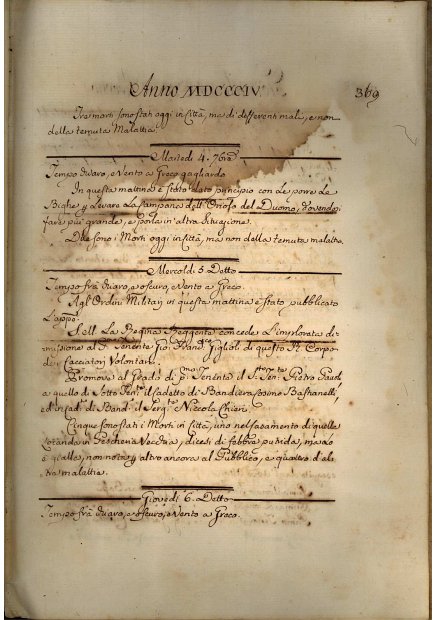 Anno MDCCCIV.
369
Tre morti sono stati oggi in Città, ma di differenti mali, e non
della temuta Malattia.
Martedì 4. 7bre
Tempo chiaro, e Vento a Greco gagliardo
In questa mattina è stato dato principio con le porre le
Bighe p. levare la Campana dell' Oriolo del Duomo, dovendosi
fare più grande, e porla in altra situazione.
Due sono i Morti oggi in Città, ma non della temuta malattia.
Mercoldì 5. Detto
Tempo frà chiaro, e oscuro, e Vento a Greco.
Agl' Ordini Militari in questa mattina è stato pubblicato
l'app.
S. M. La Regina Reggente concede l'implorata di-
missione al T. Tenente Gio. Fran. Giglioli di questo R. Corpo
dei Cacciatori Volontari.
Promove al Grado di p.mo Tenente il S. Ten. Pietro Paoli
a quello di Sotto Ten. il Cadetto di Bandiera Cosimo Bastianelli,
ed in Cad. di Band. il Serg. Niccola Chieri.
Cinque sono stati i Morti in Città, uno nel Casamento di quella
Locanda in Pescheria Vecchia, dicesi di febbre putrida, ma
non nota p. altro ancora al Pubblico, e quattro d'al-
tra malattia.
Giovedì 6. Detto
Tempo frà chiaro, e oscuro, e Vento a Greco.